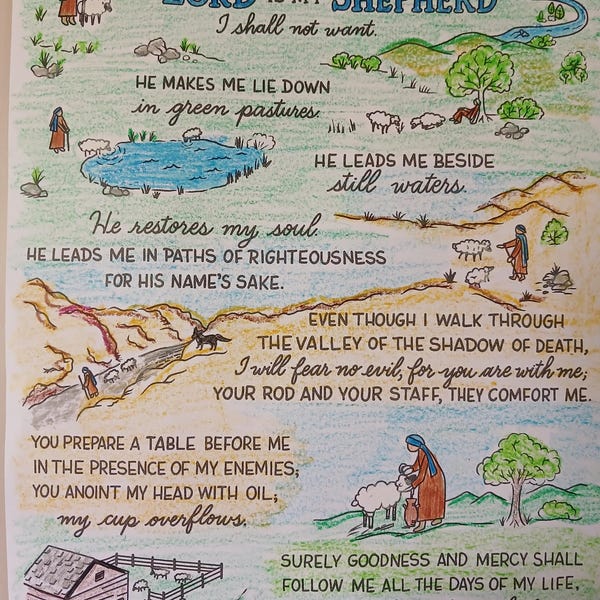 LORD IS MY SHEPHERD
I shall not want.
HE MAKES ME LIE DOWN
in green pastures.
HE LEADS ME BESIDE
still waters.
He restores my soul.
HE LEADS ME IN PATHS OF RIGHTEOUSNESS
FOR HIS NAME'S SAKE.
EVEN THOUGH I WALK THROUGH
THE VALLEY OF THE SHADOW OF DEATH,
I will fear no evil, for you are with me;
YOUR ROD AND YOUR STAFF, THEY COMFORT ME.
YOU PREPARE A TABLE BEFORE ME
IN THE PRESENCE OF MY ENEMIES;
YOU ANOINT MY HEAD WITH OIL;
my cup overflows.
SURELY GOODNESS AND MERCY SHALL
FOLLOW ME ALL THE DAYS OF MY LIFE,